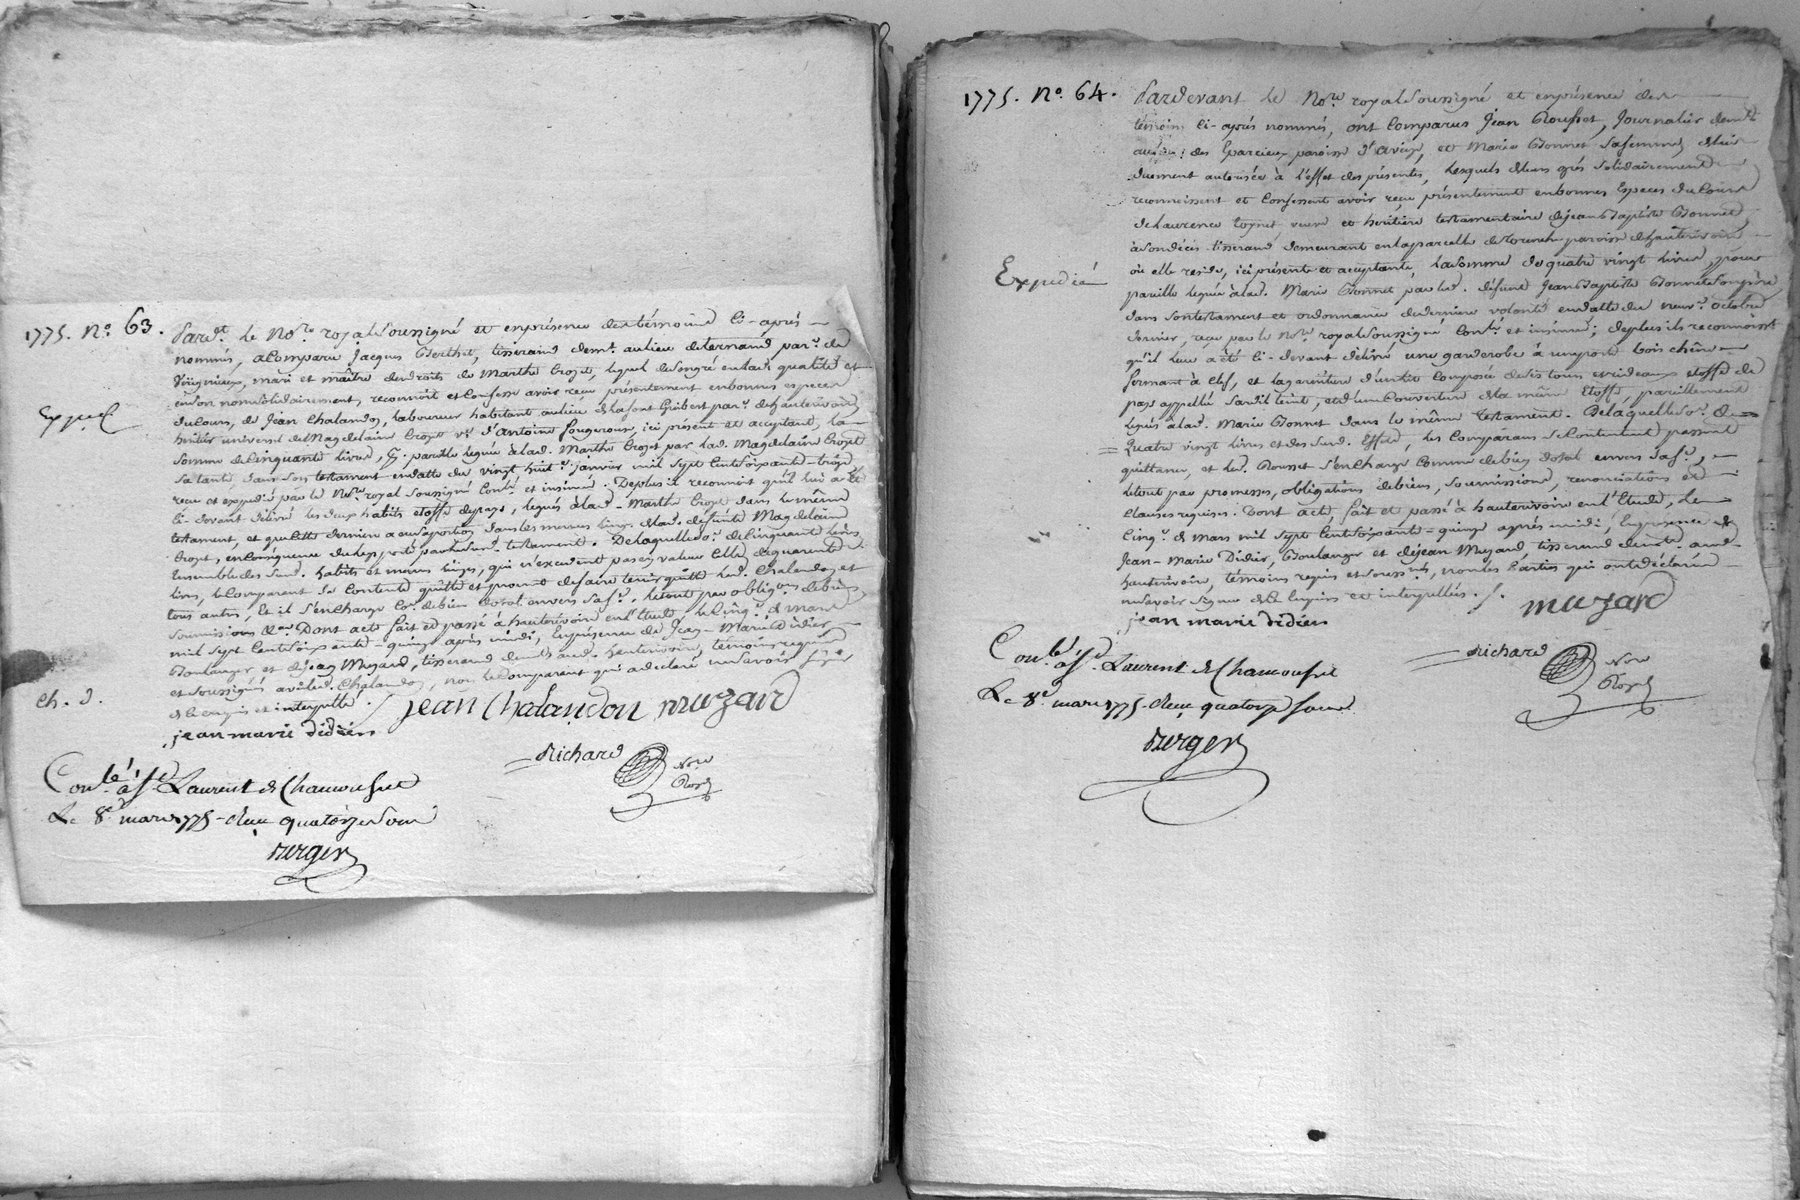 1775. No. 63.
Pard.t le No.re royal soussigné et en présence des témoins ci-après
nommés, a comparu Jacques Berthet, tisserand dem.t au lieu de ternand par.e de
Virigneux, mari et maître des droits de Marthe Crozet, lequel de son gré en lad. qualité et
en son nom solidairement, reconnoit et confesse avoir reçu présentement en bonnes especes
du cours, de Jean Chalandon, laboureur habitant au lieu de la font Gribert par.e de hauterivoire,
héritier universel de Magdelaine Crozet v.e d'Antoine fougerouse, ici présent et acceptant, la
somme de cinquante livres, pareille léguée à lad. Marthe Crozet par lad. Magdelaine Crozet
sa tante, dans son testament en datte du vingt huit janvier mil sept cent soixante-treize
reçu et expedié par le No.re royal soussigné Con.lé et insinué. De plus il reconnoit qu'il lui a été
ci-devant délivré les deux habits etoffe de pays, légués à lad. Marthe Crozet dans le même
testament, et que cette derniere a eu sa portion dans les menus linges de lad. défunte Magdelaine
Crozet, en conséquence du legs porté par led. testament. De laquelle so.e de cinquante livres
ensemble des susd. habits et menus linges, qui n'excedent pas en valeur celle de quarante
livres, le Comparant se contente quitte et promet de faire tenir quitte led. Chalandon et
tous autres, et il s'en charge co.e de bien dotal envers sa f.e. le tout par oblig.ons de biens
soumissions &.a Dont acte fait et passé à hauterivoire en l'Etude, le cinq.e de mars
mil sept cent soixante-quinze après midi, en présence de Jean-Marie Didier
Boulanger et de Jean Muzard, tisserand dem.ts aud. hauterivoire, témoins requis
et soussignés avec led. Chalandon, non le Comparant qui a déclaré ne savoir signer
de ce enquis et interpellé.
Ch. d.
jean Chalandon muzard
jean marie didier
Richard No.re Royal
Con.lé à St. Laurent de Chamousset
Le 8.e mars 1775. Reçu quatorze sous
Berger
1775. No. 64.
Pardevant le No.re royal soussigné et en présence des
témoins ci-après nommés, ont comparus Jean Rousset, Journalier dem.t
au lieu des Eparcieux paroisse d'aveize, et Marie Bonnet sa femme, de lui
duement autorisée à l'effet des présentes, Lesquels de leurs grés solidairement
reconnoissent et confessent avoir reçu présentement en bonnes Especes du Cours
de Laurence veuve et héritière testamentaire de jean Baptiste Bonnet,
à son décès tisserand demeurant en la parcelle de paroisse de hauterivoire
où elle reside, ici présente et acceptante, la somme de quatre vingt livres, pour
pareille léguée à lad. Marie Bonnet par led. défunt Jean Baptiste Bonnet son père,
dans son testament et ordonnance de derniere volonté en datte du neuf octobre
dernier, reçu par le No.re royal soussigné Con.lé et insinué; de plus ils reconnoissent
qu'il leur a été ci-devant délivré une garderobe à un porte bois chêne
fermant à clef, et la garniture d'un lit composée de ses tours et rideaux etoffe de
pays appellée sardil teint, et d'une Couverture de la même Etoffe, pareillement
légués à lad. Marie Bonnet dans le même testament. De laquelle so.e de
quatre vingt livres et des susd. Effets, les Comparans se contentent passent
quittance, et led. Rousset s'en charge comme de bien dotal envers sa f.e,
le tout par promesses, obligations de biens, soumissions, renonciations et
clauses requises. Dont acte fait et passé à hauterivoire en l'Etude, le
cinq.e de mars mil sept cent soixante-quinze après midi, en présence de
Jean-Marie Didier, Boulanger et de jean Muzard, tisserand dem.ts aud.
hauterivoire, témoins requis et souss.nés, non les Parties qui ont déclaré
ne savoir signer de ce enquis et interpellés.
Expedié
muzard
jean marie didier
Richard No.re Royal
Con.lé à St. Laurent de Chamousset
Le 8.e mars 1775. Reçu quatorze sous
Berger